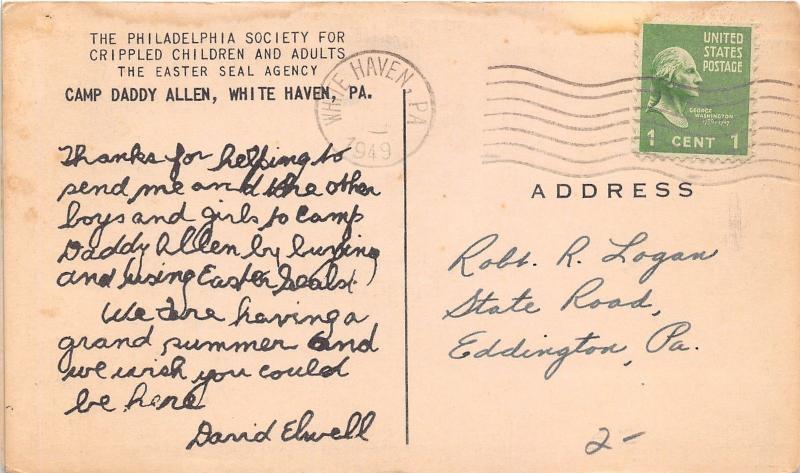 THE PHILADELPHIA SOCIETY FOR
CRIPPLED CHILDREN AND ADULTS
THE EASTER SEAL AGENCY
CAMP DADDY ALLEN, WHITE HAVEN, PA.
WHITE HAVEN, PA
1949
UNITED
STATES
POSTAGE
GEORGE
WASHINGTON
1789-1797
1 CENT 1
Thanks for helping to
send me and the other
boys and girls to Camp
Daddy Allen by buying
and using Easter Seals.
We are having a
grand summer and
we wish you could
be here
David Elwell
ADDRESS
Robt. R. Logan
State Road,
Eddington, Pa.
2-